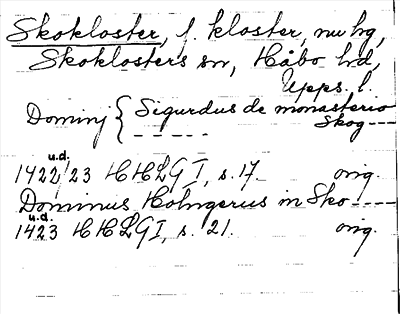 Skokloster, f. kloster, nu hg,
Skoklosters sn, Håbo hd,
Upps. l.
Dominj { Sigurdus de monasterio
– – – – – Skog – – –
u.d.
1422/23 HHLG I, s. 17. orig.
Dominus Holmgerus in Sko – – – –
u.d.
1423 HHLG I, s. 21. orig.